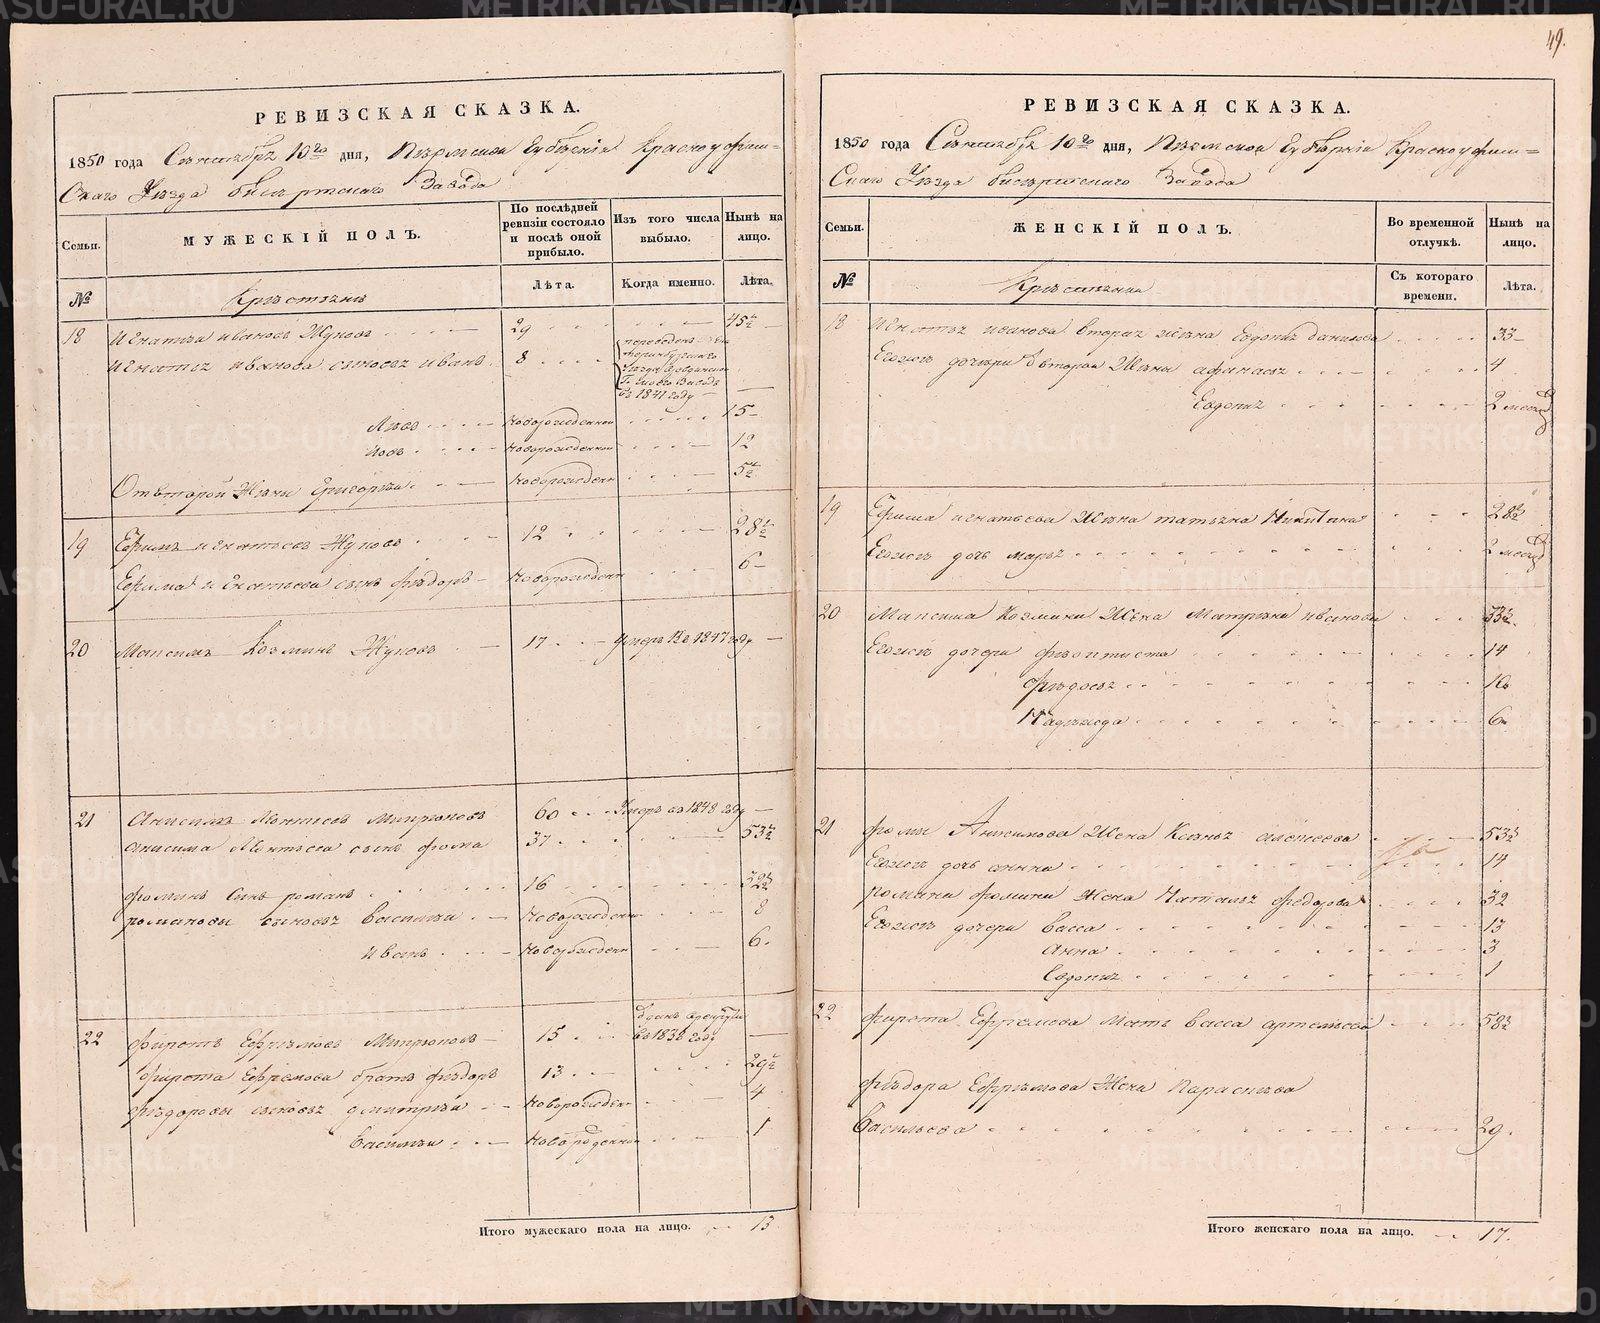 49.
РЕВИЗСКАЯ СКАЗКА.
1850 года Сентября 10го дня, Пермской Губернiи Красноуфим=
Скаго Уѣзда бисертскаго Завода
Семьи. МУЖЕСКIЙ ПОЛЪ. По послѣдней ревизiи состояло и послѣ оной прибыло. Изъ того числа выбыло. Нынѣ на лицо.
№ Крѣстьянѣ Лѣта. Когда именно. Лѣта.
18 Игнатiй ивановъ Жуковъ 29 45½
Игнатья иванова сыновья иванъ 8 переведенъ в Ека
теринбургскаго
Уѣзда
Заводъ
въ 1841 году
Лѣвъ Новорожденной 15
иовъ Новорожденной 12
Отвторой Жѣны Григорѣи Новорожден 5½
19 Ефимъ игнатьевъ Жуковъ 12 28½
Ефима игнатьева сынъ фѣдоръ Новорожден 6
20 Максимъ Козминъ Жуковъ 17 Умеръ въ 1847 году
21 Анисимъ Мѣнтьевъ 60 Умеръ въ 1848 году
Анисима сынъ фома 37 53½
фоминъ Сынъ романъ 16 32½
романовы Сыновья Василѣи Новорожден 8
иванъ Новорожден 6.
22 Ефрѣмовъ 15
въ 1836 году
Ефремова братъ фѣдоръ 13 29½
фѣдоровы сыновья дмитрѣй Новорожден 4
Василѣи Новорожденной 1
Итого мужескаго пола на лицо. 13
РЕВИЗСКАЯ СКАЗКА.
1850 года Сентября 10го дня, Пѣрмской Губѣрнiи Красноуфим=
Скаго Уѣзда бисѣртскаго Завода
Семьи. ЖЕНСКIЙ ПОЛЪ. Во временной отлучкѣ. Нынѣ на лицо.
№ Крѣстьянки Съ котораго времени. Лѣта.
18 Игнатья иванова вторая жѣна Евдокья данилова 33
Егожъ дочѣри Отвторой Жѣны афанасья 4
Евдокия 2 месяц
19 Ефима игнатьева Жѣна татьяна Никитина 28½
Егожъ дочь марья 2 месяц
20 Максима Козмина Жѣна Матрѣна иванова 33½.
Егожъ дочери фѣоктиста 14
фѣдосья 10
Надѣжда 6
21 фомы Анисимова Жена Ксѣнья алексеева 53½
Егожъ дочь анна 14
романа фомина Жена Наталья федорова 32
Егожъ дочери Васса 13
Анна 3
Евдокия 1
22 Ефремова Мать Васса артемьева 58½
фѣдора Ефрѣмова Жена Парасковья
Васильева 29.
Итого женскаго пола на лицо. 17.
METRIKI.GASO-URAL.RU